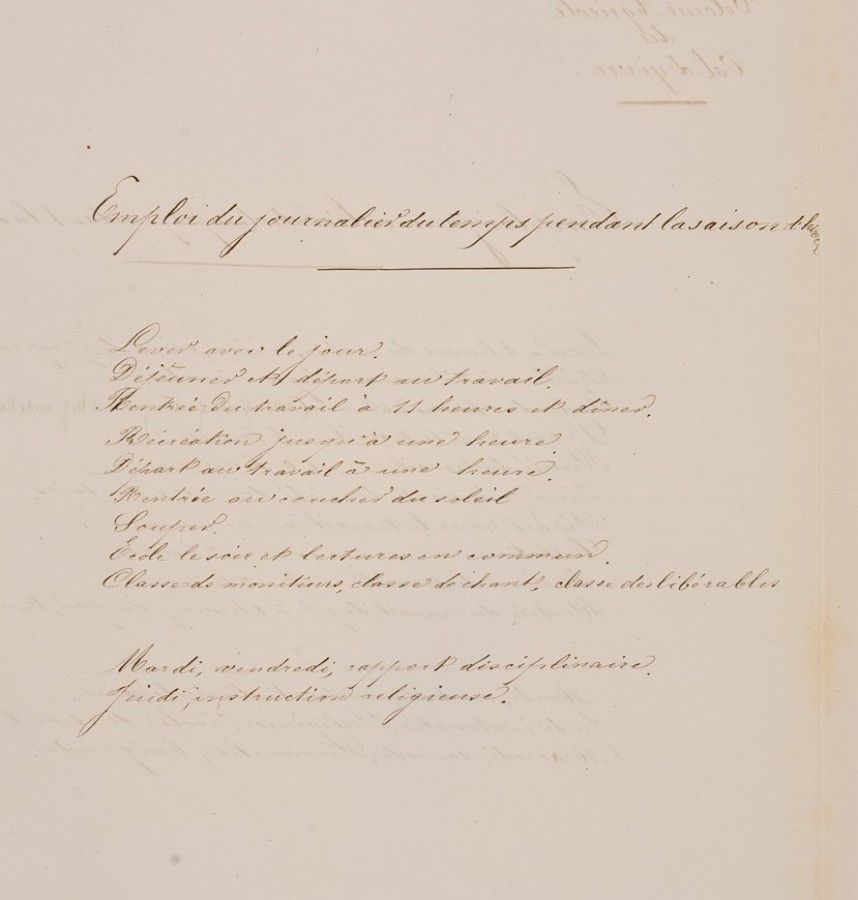 Emploi du journalier du temps pendant la saison d'hiver
Lever avec le jour.
Déjeuner et départ au travail.
Rentrée du travail à 11 heures et dîner.
Récréation jusqu'à une heure.
Départ au travail à une heure.
Rentrée au coucher du soleil
Souper.
École le soir et lectures en commun.
Classe de moniteurs, classe de chant, classe des libérables
Mardi, vendredi, rapport disciplinaire.
Jeudi, instruction religieuse.